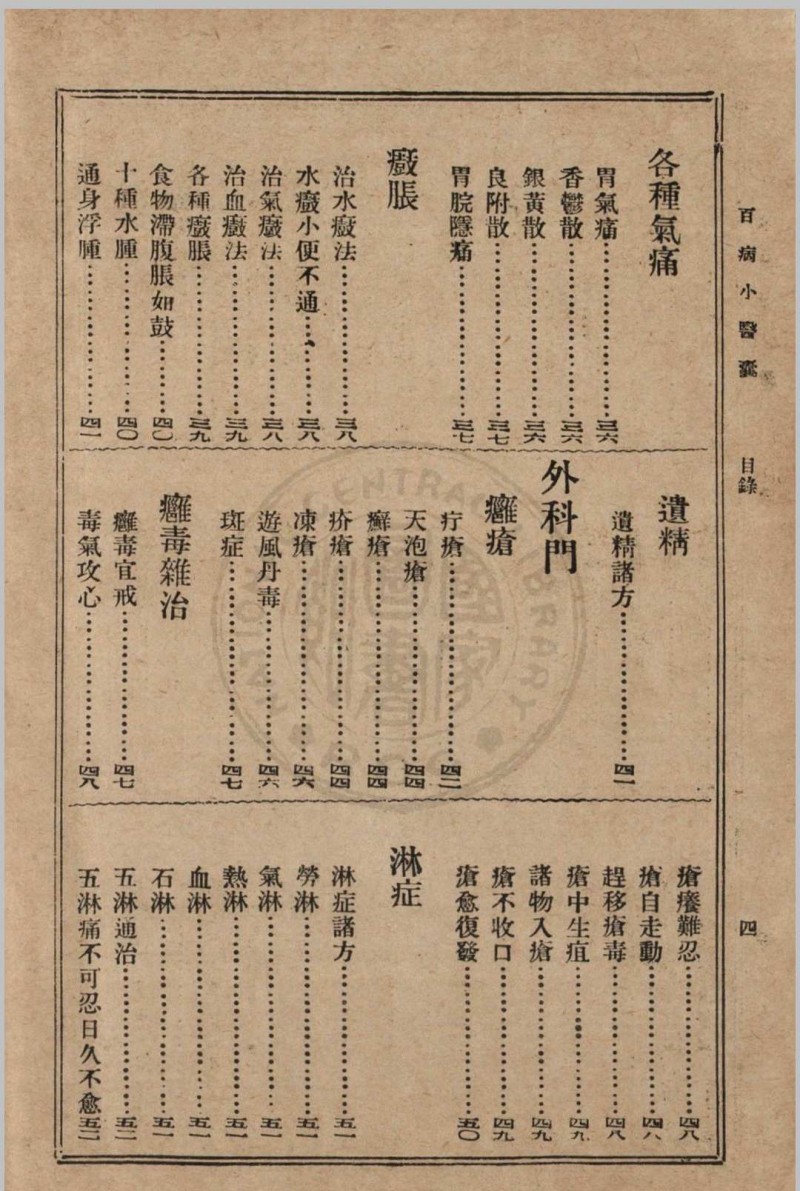 百病小醫囊　目錄　四
各種氣痛
胃氣痛……三六
香鬱散……三六
銀黃散……三六
良附散……三七
胃脘隱痛……三七
癈脹
治水癈法……三八
水癈小便不通……三八
治氣癈法……三八
治血癈法……三九
各種癈脹……三九
食物滯腹脹如鼓……四〇
十種水腫……四〇
通身浮腫……四一
遺精
遺精諸方……四一
外科門
癰瘡
疔瘡……四二
天泡瘡……四四
癬瘡……四四
疥瘡……四四
凍瘡……四六
遊風丹毒……四六
斑症……四七
癰毒雜治
癰毒宜戒……四七
毒氣攻心……四八
瘡癢難忍……四八
瘡自走動……四八
趕移瘡毒……四八
瘡中生疽……四九
諸物入瘡……四九
瘡不收口……四九
瘡愈復發……五〇
淋症
淋症諸方……五一
勞淋……五一
氣淋……五一
熱淋……五一
血淋……五一
石淋……五一
五淋通治……五二
五淋痛不可忍日久不愈五二